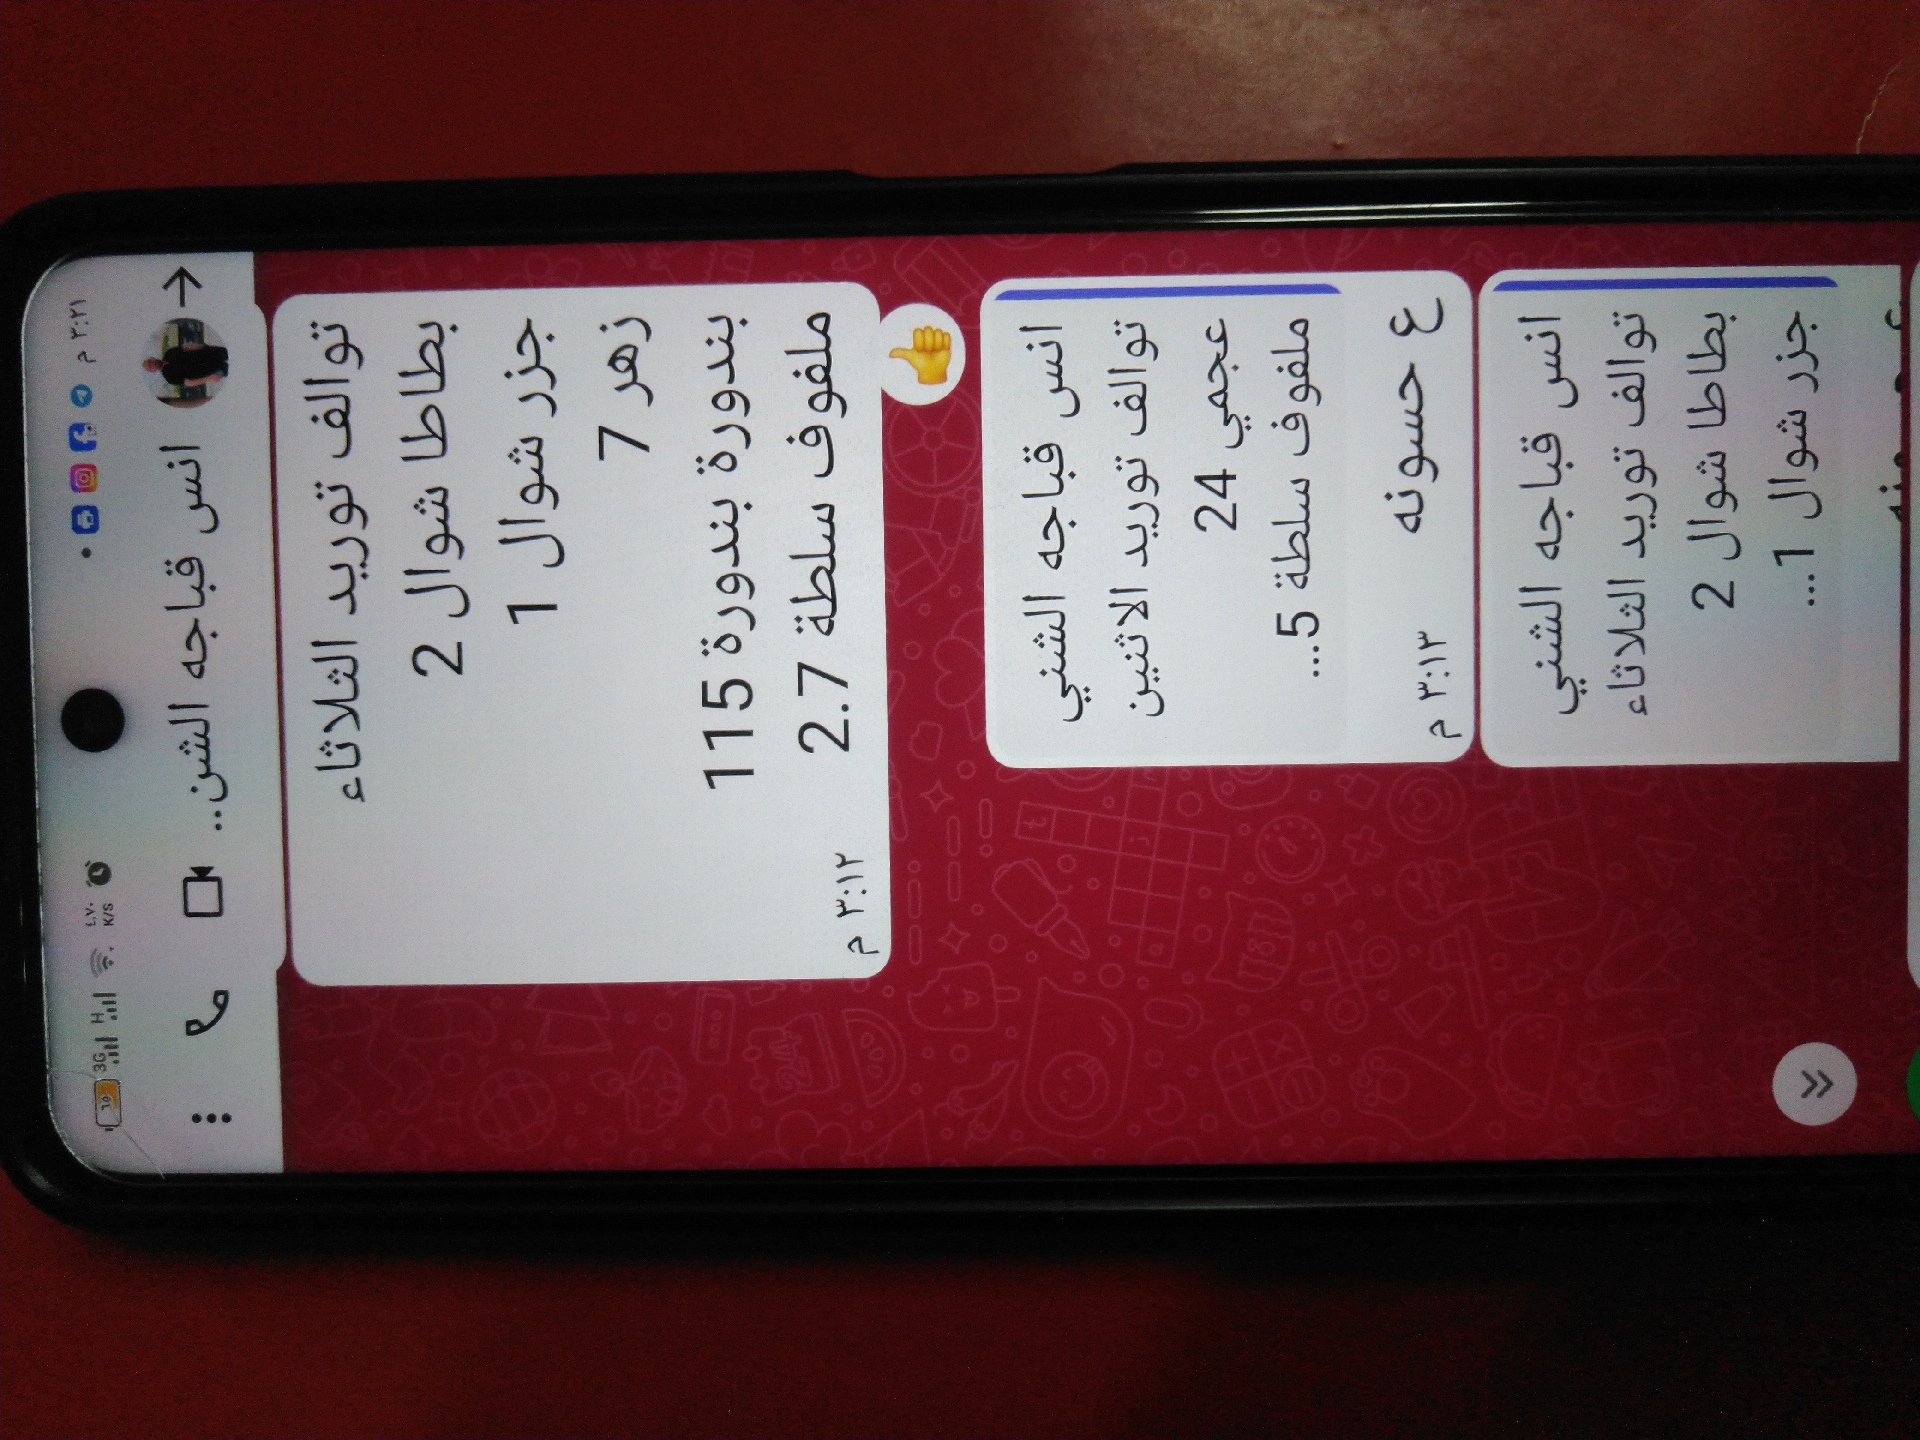 ٣:٢١ م
3G H ٤.٧٠ K/S ٦٥
انس قباجه الشن...
توالف توريد الثلاثاء
بطاطا شوال 2
جزر شوال 1
زهر 7
بندورة بندورة 115
ملفوف سلطة 2.7
٣:١٢ م
انس قباجه الشني
توالف توريد الاثنين
عجمي 24
ملفوف سلطة 5...
ع حسونه
٣:١٣ م
انس قباجه الشني
توالف توريد الثلاثاء
بطاطا شوال 2
جزر شوال 1...